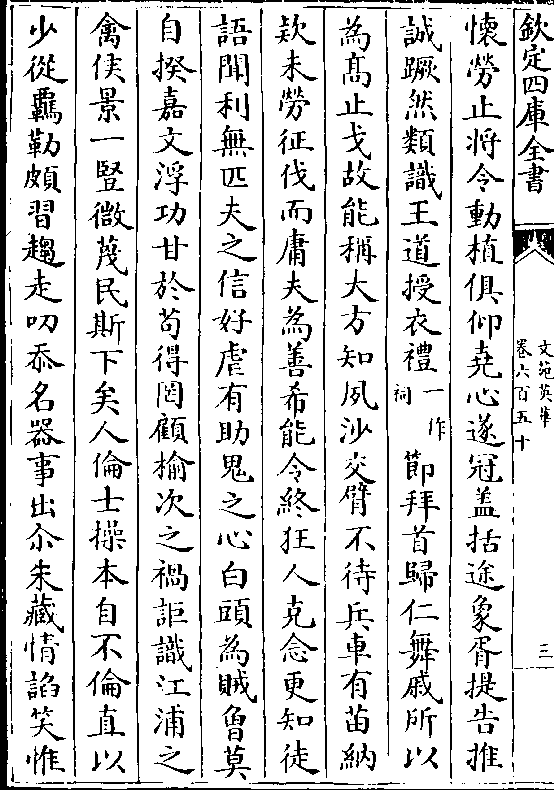 欽定四庫全書
文苑英華
卷六百五十
三
懷勞止將令動植俱仰堯心遂冠盖括途象胥提告推
誠蹶然類識王道授衣禮一作祠節拜首歸仁舞戚所以
為髙止戈故能稱大方知夙沙交臂不待兵車有苗納
欵未勞征伐而庸夫為善希能令終狂人克念更知徒
語聞利無匹夫之信好虐有助鬼之心白頭為賊曾莫
自揆嘉文浮功甘於苟得罔顧榆次之禍詎識江浦之
禽侯景一豎微蔑民斯下矣人倫士操本自不倫直以
少從羈勒頗習趨走叨忝名器事出尒朱藏情諂笑惟